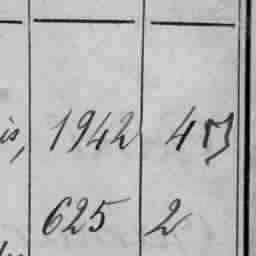 is, 1942
625 2